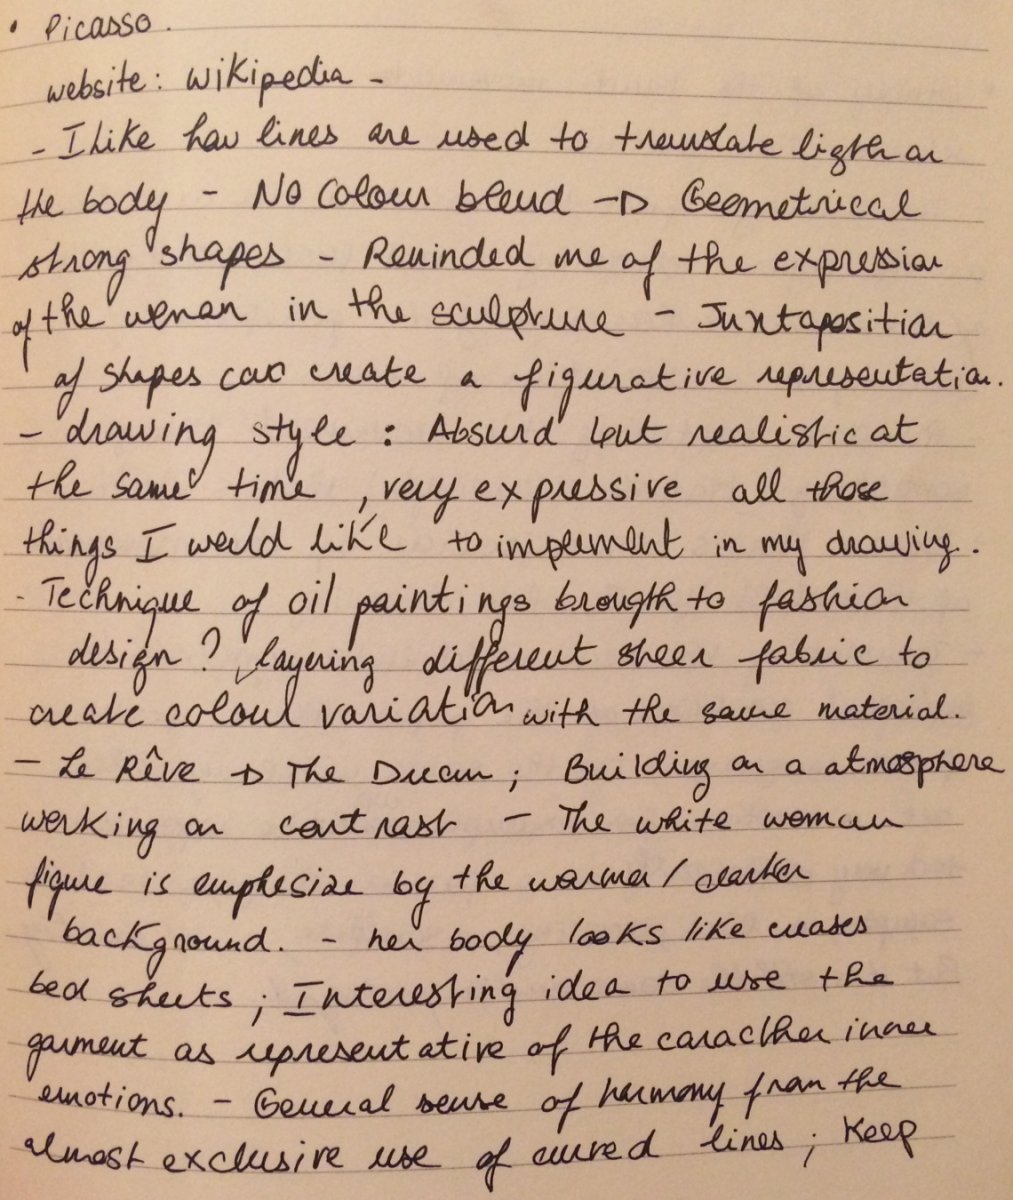 • Picasso.
website: Wikipedia -
- I like how lines are used to translate ligth on
the body - No colour blend → Geometrical
strong shapes - Reminded me of the expression
of the woman in the sculpture - Juxtaposition
of shapes can create a figurative representation.
- drawing style : Absurd but realistic at
the same time , very expressive all those
things I would like to implement in my drawing.
- Technique of oil paintings brougth to fashion
design ? layering different sheer fabric to
create colour variation with the same material.
- Le Rêve → The Dream ; Building on a atmosphere
working on contrast - The white woman
figure is emphesize by the warmer / darker
background. - her body looks like creases
bed sheets ; Interesting idea to use the
garment as representative of the caracther inner
emotions. - General sense of harmony from the
almost exclusive use of curved lines ; Keep